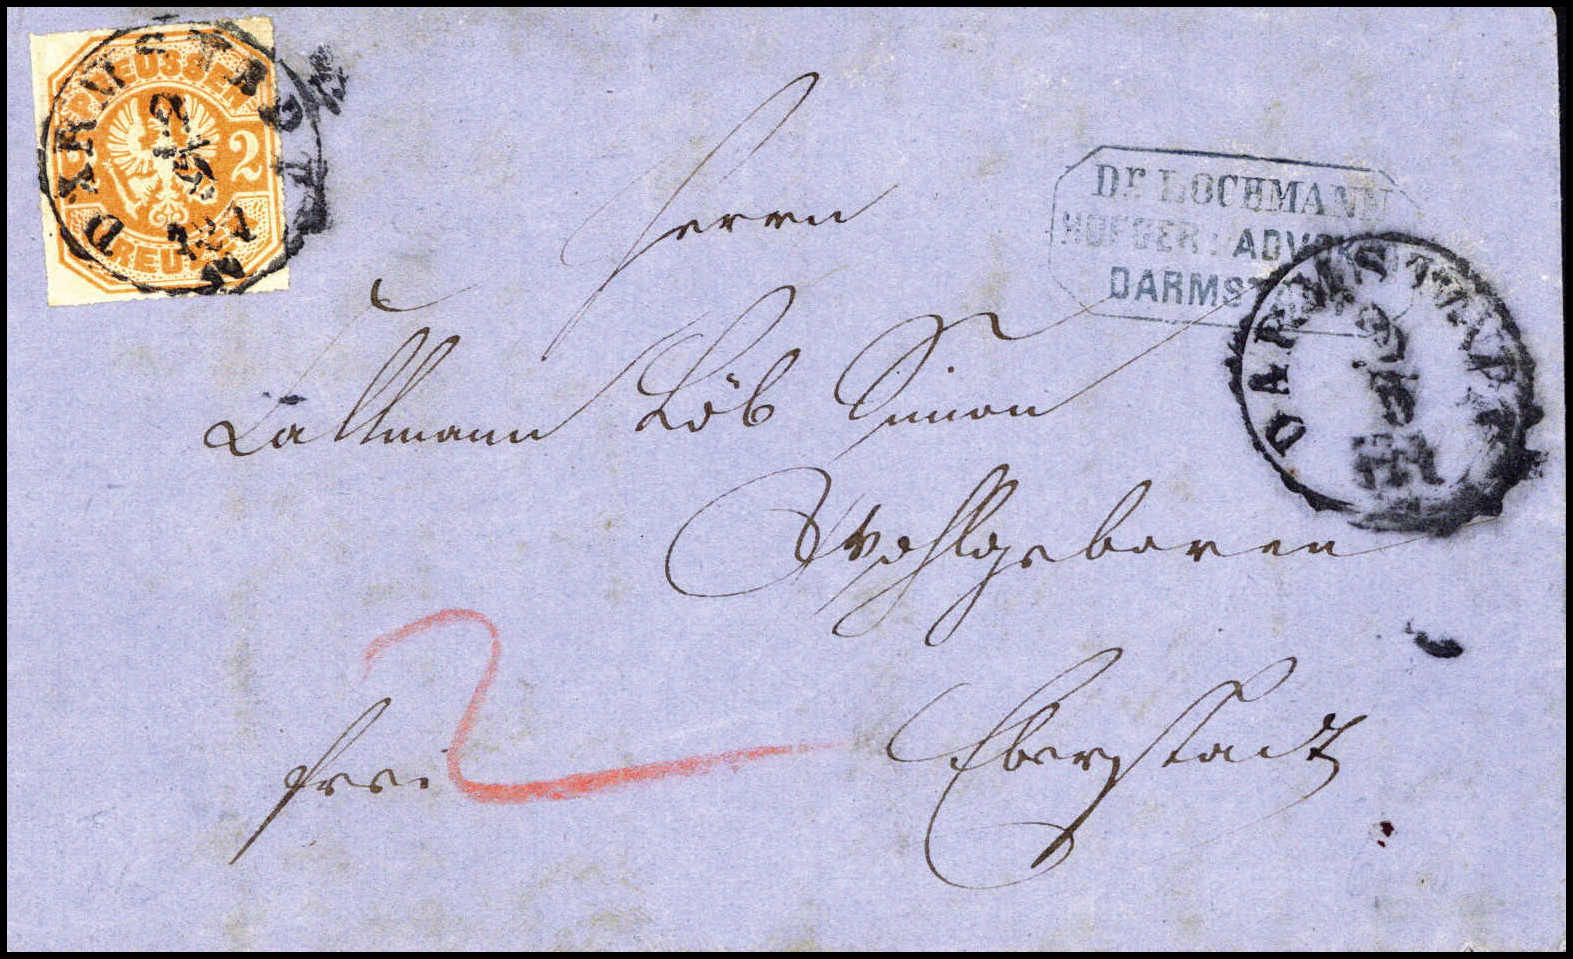 PREUSSEN
2
KREUZER
DARMSTADT
Dr. LOCHMANN
HOFGER. ADVOKAT
DARMSTADT
DARMSTADT
Herrn
Callmann Löb Simon
Wohlgeboren
frei
2
Eberstadt